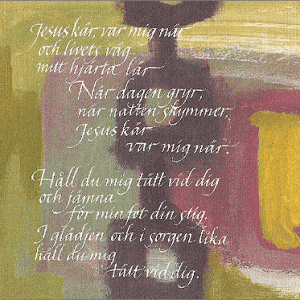 Jesus kär, var mig när
och livets väg
mitt hjärta lär
När dagen gryr,
när natten skymmer,
Jesus kär
var mig när.
Håll du mig tätt vid dig
och jämna
för min fot din stig.
I glädjen och i sorgen lika
håll du mig
tätt vid dig.